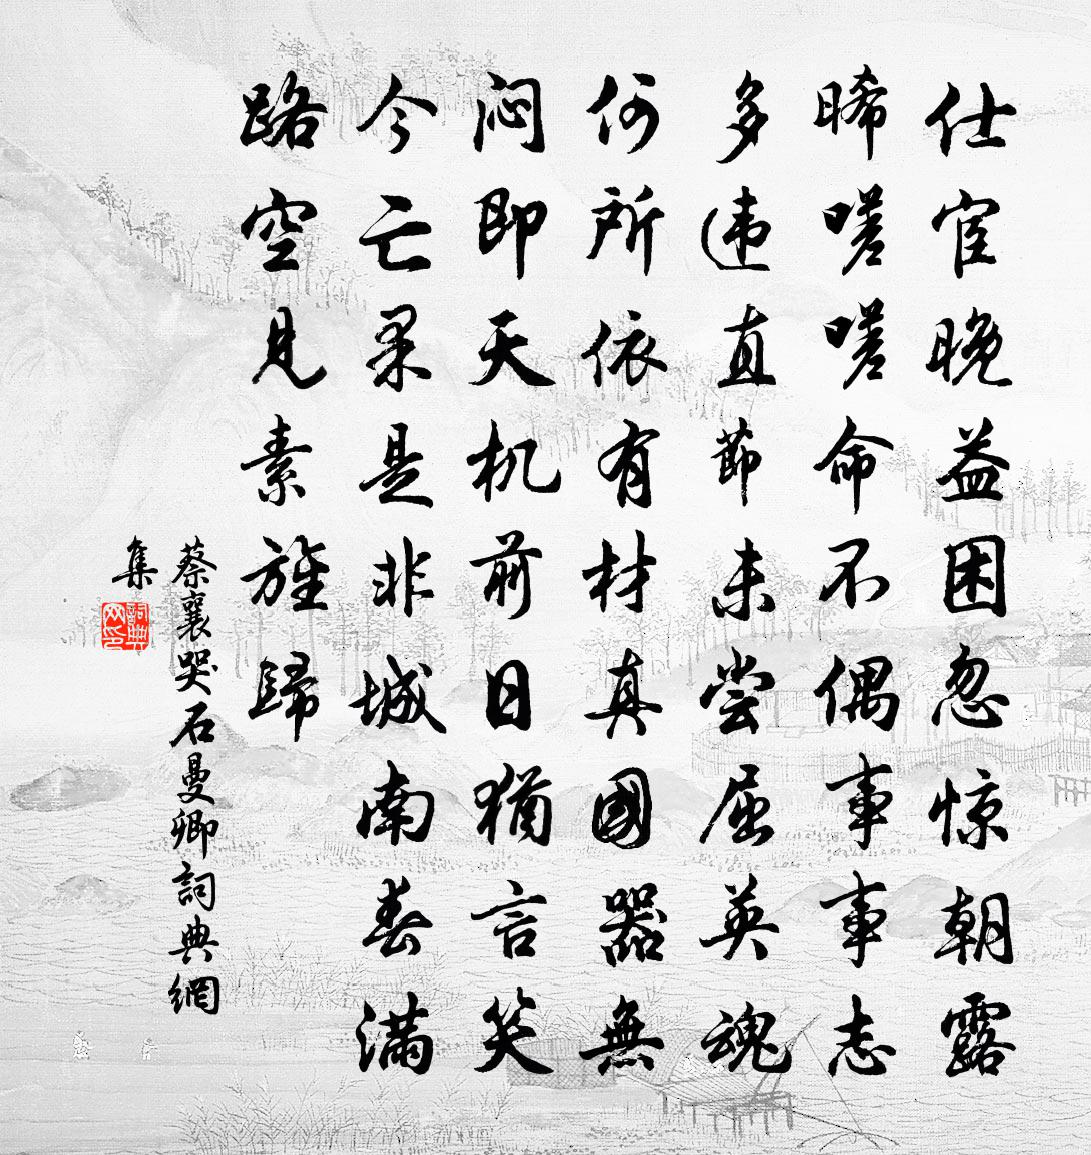 仕宦晚益困忽惊朝露
晞嗟嗟命不偶事事志
多违直節未尝屈英魂
何所依有材真國器無
闷即天机前日猶言笑
今亡果是非城南春滿
路空見素旌歸
蔡襄哭石曼卿詞典網
集
詞典网印